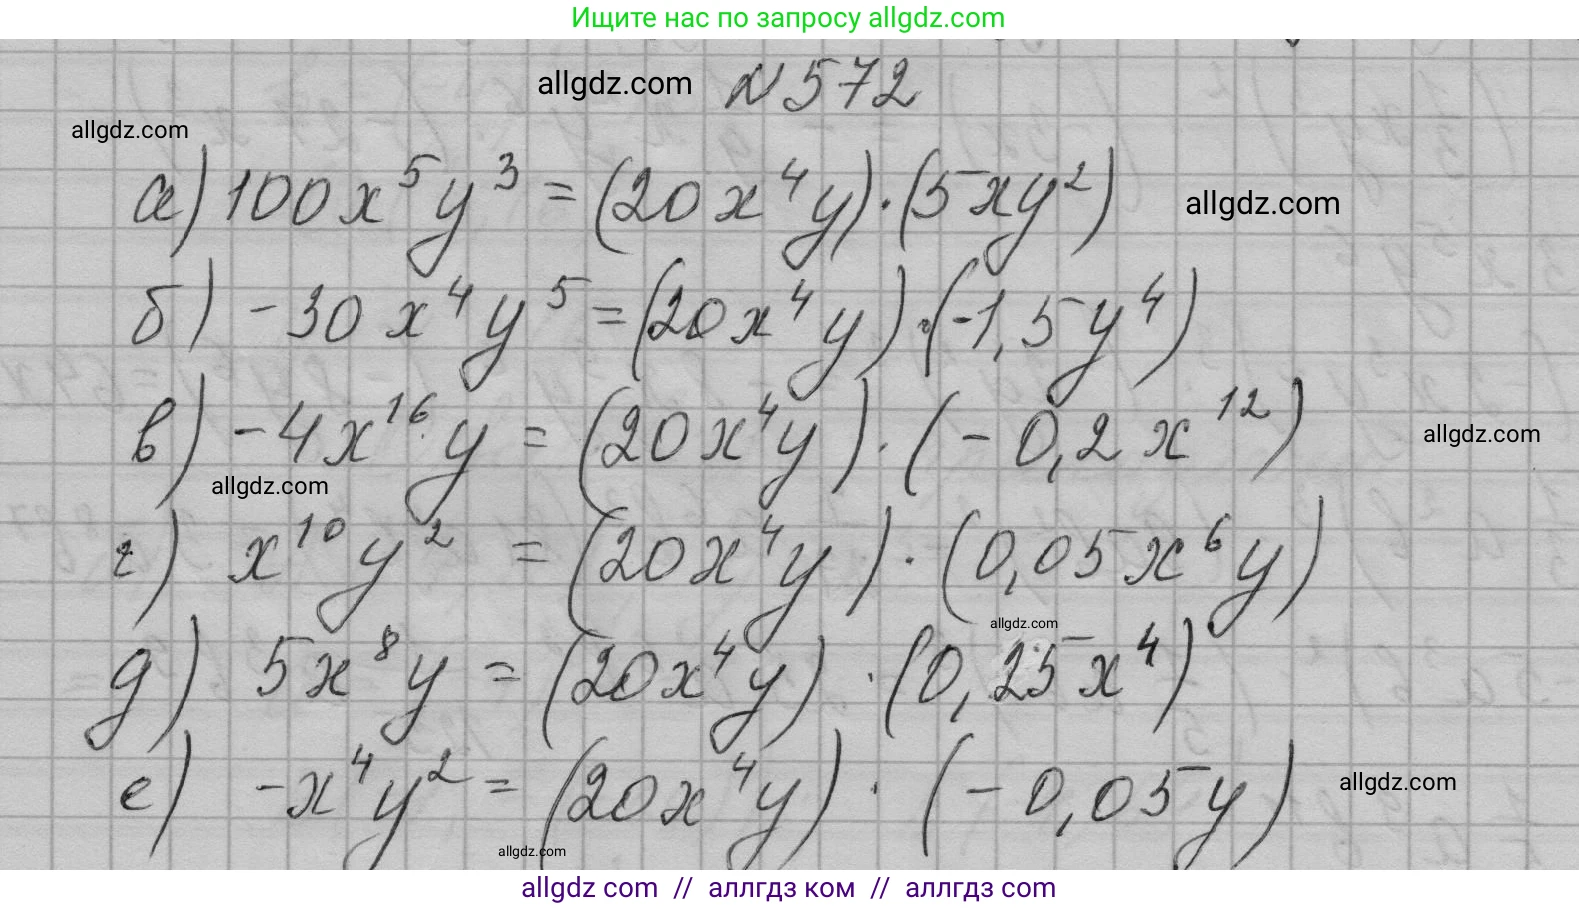 Ищите нас по запросу allgdz.com
allgdz.com № 572
allgdz.com
а) 100x⁵y³ = (20x⁴y)·(5xy²) allgdz.com
б) -30x⁴y⁵ = (20x⁴y)·(-1,5y⁴)
в) -4x¹⁶y = (20x⁴y)·(-0,2x¹²) allgdz.com
allgdz.com
г) x¹⁰y² = (20x⁴y)·(0,05x⁶y)
allgdz.com
д) 5x⁸y = (20x⁴y)·(0,25x⁴)
е) -x⁴y² = (20x⁴y)·(-0,05y) allgdz.com
allgdz.com
allgdz com // аллгдз ком // аллгдз com